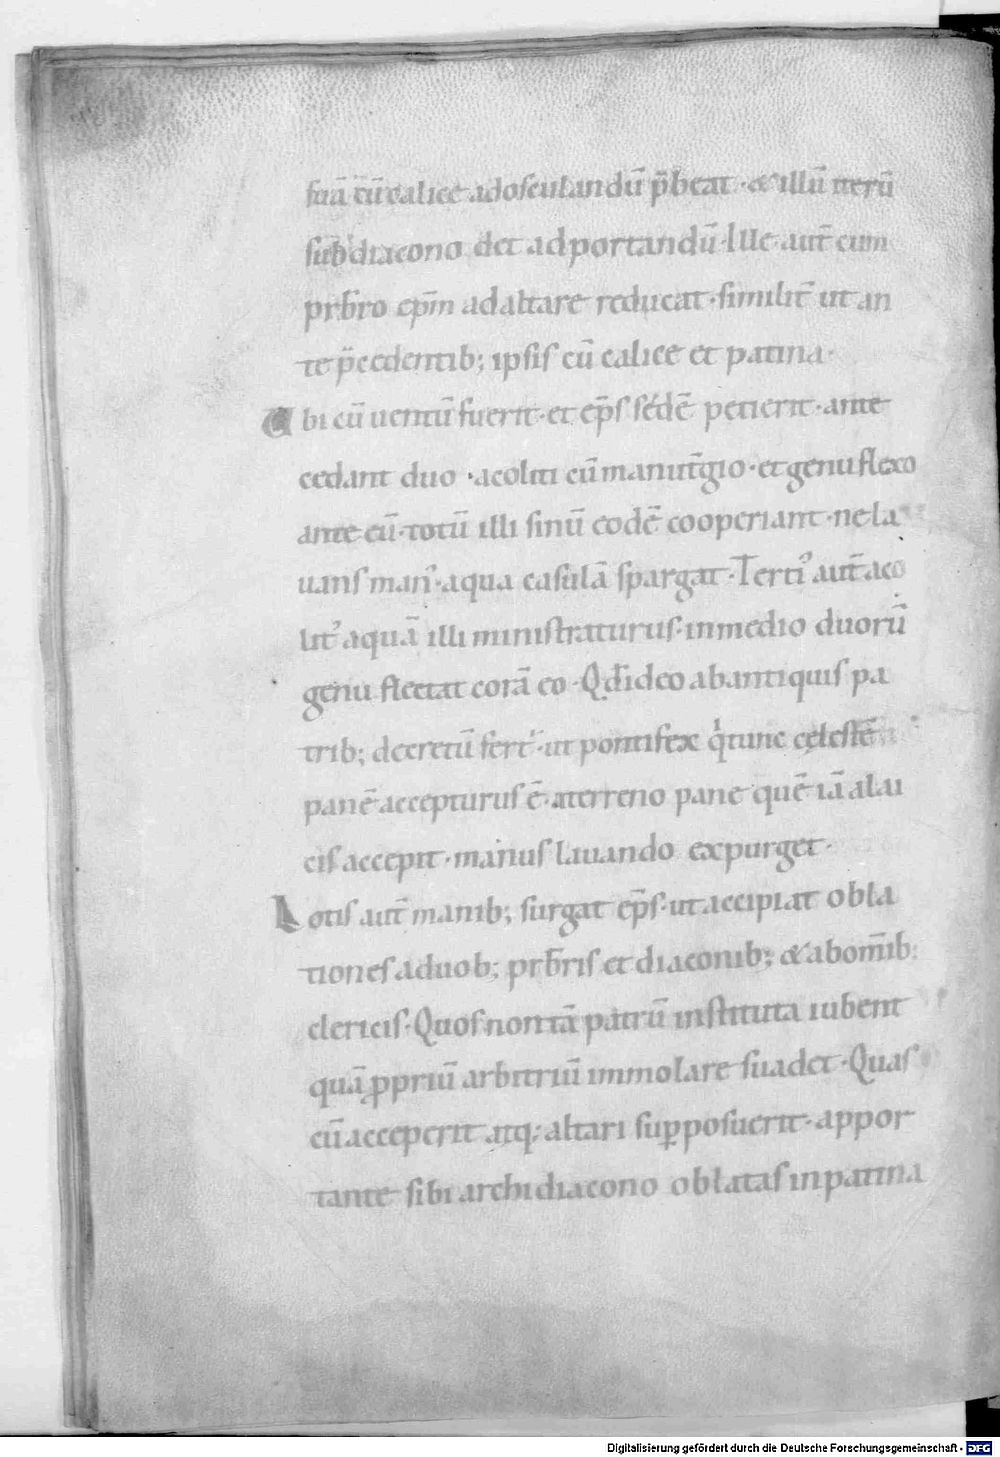 suā cū calice adosculandū p̄beat · & illū iterū
sub diacono det adportandū · Ille aut̄ cum
prb̄ro ep̄m adaltare reducat · similit̄ ut an
te p̄cedentib; ipsis cū calice et patina ·
Ubi cū uentū fuerit · et ep̄s sedē petierit · ante
cedant duo · acoliti cū manut̄gio · et genu flexo
ante eū · totū illi sinū eodē cooperiant · ne la
uans man᷒ · aqua casulā spargat · Terti᷒ aut̄ aco
lit᷒ aquā illi ministraturus · inmedio duorū
genu flectat corā eo · Qd̄ ideo abantiquis pa
trib; decretū fert᷒ · ut pontifex q̇ tunc cęlestē
panē accepturus ē · aterreno pane quē iā alai
cis accepit · manus lauando expurget ·
Lotis aut̄ manib; surgat ep̄s · ut accipiat obla
tiones aduob; prb̄ris et diaconib; & abom̄ib;
clericis · Quos nontā patrū instituta iubent
quā ꝓpriū arbitriū immolare suadet · Quas
cū acceperit atq; altari sup̱posuerit · appor
tante sibi archidiacono oblatas inpatina
Digitalisierung gefördert durch die Deutsche Forschungsgemeinschaft - DFG